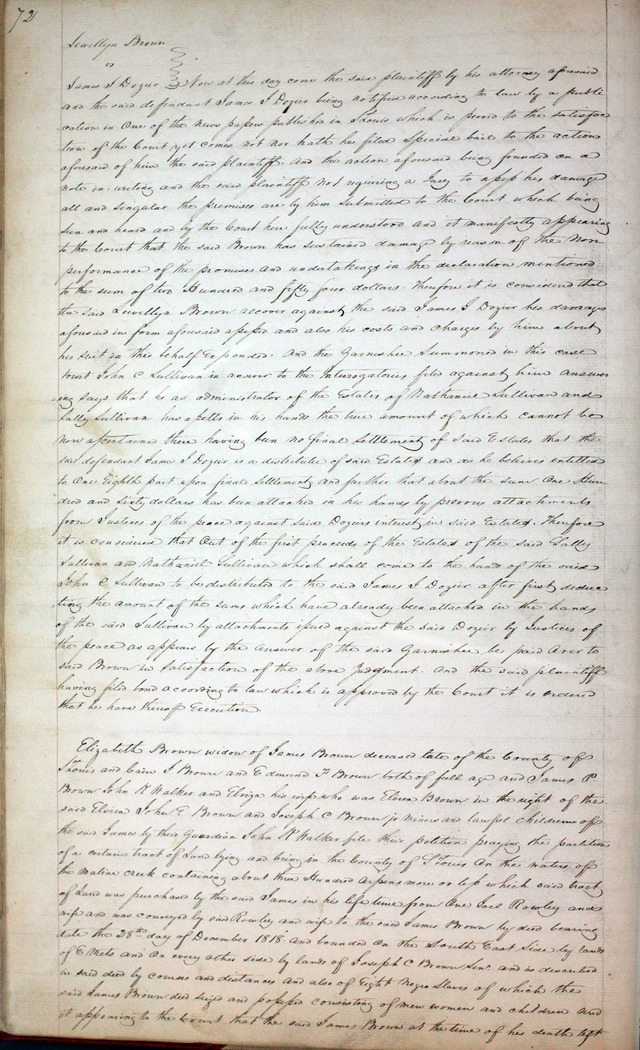 72
Lewellyn Brown
vs
James I Dozier Now at this day come the said plaintiff by his attorney aforesaid
and the said defendant James I Dozier being notified according to law by a publi
cation in One of the news papers published in St Louis which is proved to the satisfac
tion of the Court yet comes not nor hath he filed Special bail to the action
aforesaid of him the said plaintiff. And the action aforesaid being founded on a
note in writing and the said plaintiff not requiring a Jury to assess his damage
all and singular the premises are by him submitted to the Court which being
seen and heard and by the Court here fully understood and it manifestly appearing
to the Court that the said Brown has sustained damage by reason of the Non
performance of the promises and undertakings in the declaration mentioned
to the sum of two Hundred and fifty four dollars. Therefore it is considered that
the said Lewellyn Brown recover against the said James I Dozier his damages
aforesaid in form aforesaid assessed and also his costs and charges by him about
his suit in this behalf Expended. And the Garnishee Summoned in this case
towit John C Sullivan in answer to the Interrogatories filed against him answer
ing Says that he as administrator of the Estates of Nathaniel Sullivan and
Sally Sullivan has assetts in his hands the true amount of which cannot be
now ascertained there having been no final settlement of Said Estates that the
said defendant James I Dozier is a distributee of said Estates and as he believes entitled
to One Eighth part upon final Settlement and further that about the sum One Hun
dred and sixty dollars has been attached in his hands by previous attachments
from Justices of the peace against said Doziers interest in said Estates. Therefore
it is considered that Out of the first proceeds of the Estates of the said Sally
Sullivan and Nathaniel Sullivan which shall come to the hand of the said
John C Sullivan to be distributed to the said James I Dozier after first deduc
ting the amount of the sums which have already been attached in the hands
of the said Sullivan by attachments issued against the said Dozier by Justices of
the peace as appears by the answer of the said Garnishee be paid over to
said Brown in Satisfaction of the above Judgment. And the said plaintiff
having filed bond according to law which is approved by the Court it is ordered
that he have thereof Execution
Elizabeth Brown widow of James Brown deceased late of the County of
St Louis and I Brown and Edmund T Brown both of full age and James P
Brown John K Walker and Eloiza his wife who was Elvira Brown in the right of the
said Elvira John E Brown and Joseph C Brown jr Minors and lawful children of
the said James by their Guardian John K Walker file their petition praying the partition
of a certain tract of Land lying and being in the County of St Louis On the waters of
the Maline Creek containing about three Hundred arpens more or less which said tract
of Land was purchased by the said James in his life time from One Joel Rowley and
wife and was conveyed by said Rowley and wife to the said James Brown by deed bearing
date the 28th day of December 1818 and bounded On the South East Side by lands
of and On every other side by lands of Joseph C Brown Senr and is described
in said deed by courses and distances And also of Eight Negro Slaves of which the
said James Brown died seized and possessed consisting of men women and children And
it appearing to the Court that the said James Brown at the time of his death left